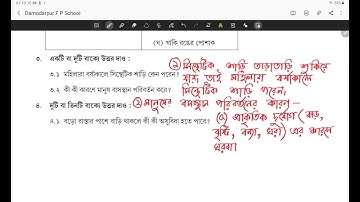 Damodarpur F P School
(ঘ) খাকি রঙের পোশাক
৩. একটি বা দুটি বাক্যে উত্তর দাও :
৩.১ মহিলারা বর্ষাকালে সিন্থেটিক শাড়ি কেন পরেন ?
৩.২ কী কী কারণে মানুষ বাসস্থান পরিবর্তন করে ?
৪. দুটি বা তিনটি বাক্যে উত্তর দাও :
৪.১ বড়ো রাস্তার পাশে বাড়ি থাকলে কী কী অসুবিধা হতে পারে ?
① সিন্থেটিক শাড়ি তাড়াতাড়ি শুকিয়ে
যায়, তাই মহিলারা বর্ষাকালে
সিন্থেটিক শাড়ি পরেন,
② মানুষের বাসস্থান পরিবর্তনের কারণ —
প্রাকৃতিক দুর্যোগ (ঝড়,
বৃষ্টি, বন্যা, খরা) এর কারণে
ঘরবা